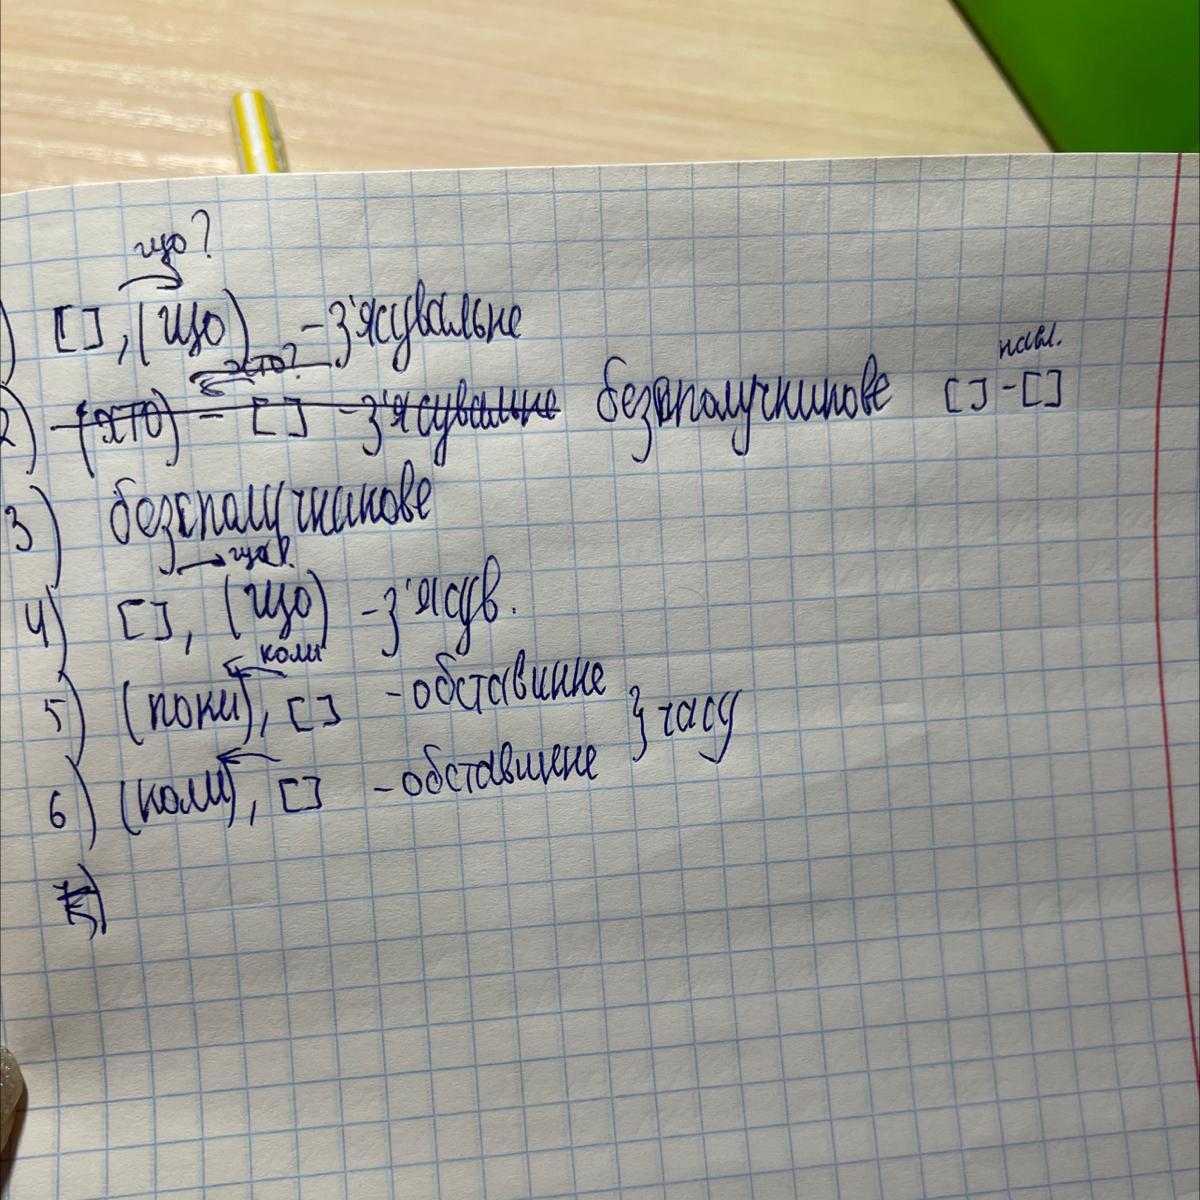 що?
) [ ], (що) - з'ясувальне
хто?
2) (хто) - [ ] - з'ясувальне безсполучникове [ ] - [ ]
3) безсполучникове
4) [ ], (що) - з'ясув.
коли
5) (поки), [ ] - обставинне
} часу
6) (коли), [ ] - обставинне